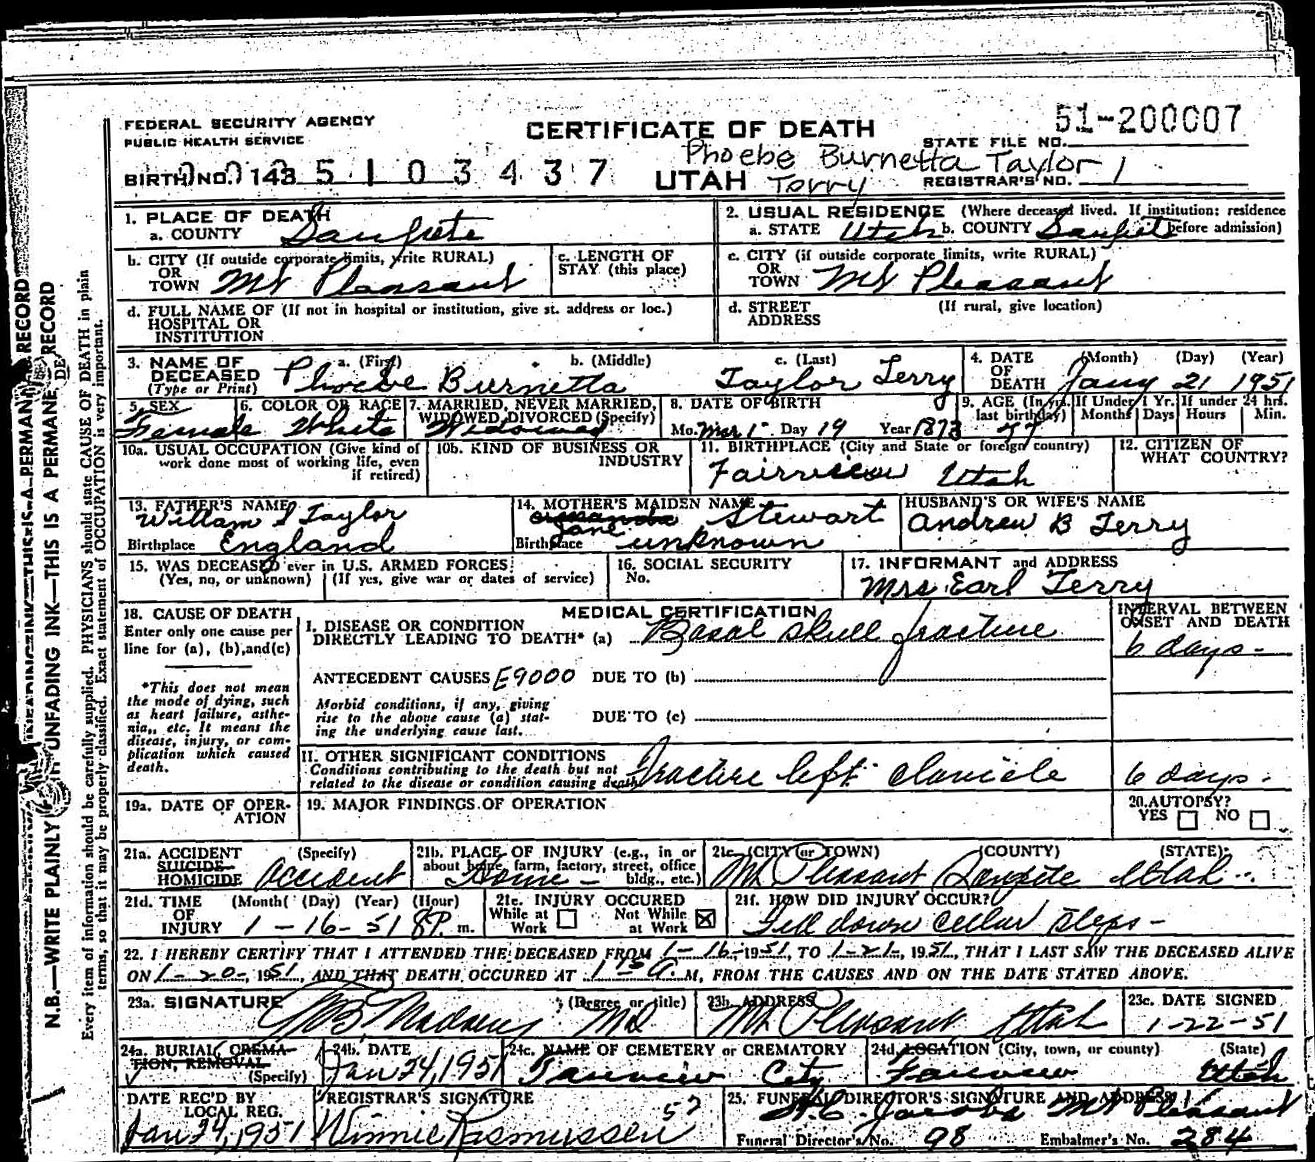 FEDERAL SECURITY AGENCY
PUBLIC HEALTH SERVICE
CERTIFICATE OF DEATH
51-200007
STATE FILE NO.
Phoebe Burnetta Taylor
BIRTH NO. 143 5 1 0 3 4 3 7
UTAH Terry
REGISTRAR'S NO. 1
1. PLACE OF DEATH
a. COUNTY Sanpete
2. USUAL RESIDENCE (Where deceased lived. If institution: residence before admission)
a. STATE Utah b. COUNTY Sanpete
b. CITY (If outside corporate limits, write RURAL) OR TOWN Mt Pleasant
c. LENGTH OF STAY (this place)
c. CITY (if outside corporate limits, write RURAL) OR TOWN Mt Pleasant
d. FULL NAME OF (If not in hospital or institution, give st. address or loc.) HOSPITAL OR INSTITUTION
d. STREET ADDRESS (If rural, give location)
3. NAME OF DECEASED (Type or Print) a. (First) b. (Middle) c. (Last)
Phoebe Burnetta Taylor Terry
4. DATE OF DEATH (Month) (Day) (Year)
Jany 21 1951
5. SEX Female
6. COLOR OR RACE White
7. MARRIED, NEVER MARRIED, WIDOWED, DIVORCED (Specify) Widowed
8. DATE OF BIRTH
Mo. Mar 1 Day 19 Year 1873
9. AGE (In yrs. last birthday) 77
If Under 1 Yr. Months Days
If under 24 hrs. Hours Min.
10a. USUAL OCCUPATION (Give kind of work done most of working life, even if retired)
10b. KIND OF BUSINESS OR INDUSTRY
11. BIRTHPLACE (City and State or foreign country)
Fairview Utah
12. CITIZEN OF WHAT COUNTRY?
13. FATHER'S NAME
William S Taylor
Birthplace England
14. MOTHER'S MAIDEN NAME
Jane Stewart
Birthplace unknown
HUSBAND'S OR WIFE'S NAME
Andrew B Terry
15. WAS DECEASED ever in U.S. ARMED FORCES?
(Yes, no, or unknown) (If yes, give war or dates of service)
16. SOCIAL SECURITY No.
17. INFORMANT and ADDRESS
Mrs Earl Terry
18. CAUSE OF DEATH
Enter only one cause per line for (a), (b), and (c)
*This does not mean the mode of dying, such as heart failure, asthenia, etc. It means the disease, injury, or complication which caused death.
MEDICAL CERTIFICATION
INTERVAL BETWEEN ONSET AND DEATH
I. DISEASE OR CONDITION DIRECTLY LEADING TO DEATH* (a) Basal skull fracture
6 days-
ANTECEDENT CAUSES E9000 DUE TO (b)
Morbid conditions, if any, giving rise to the above cause (a) stating the underlying cause last.
DUE TO (c)
II. OTHER SIGNIFICANT CONDITIONS
Conditions contributing to the death but not related to the disease or condition causing death
Fracture left clavicle
6 days.
19a. DATE OF OPERATION
19. MAJOR FINDINGS OF OPERATION
20. AUTOPSY? YES NO
21a. ACCIDENT SUICIDE HOMICIDE (Specify) Accident
21b. PLACE OF INJURY (e.g., in or about home, farm, factory, street, office bldg., etc.) Home -
21c. (CITY or TOWN) (COUNTY) (STATE)
Mt Pleasant Sanpete Utah
21d. TIME OF INJURY (Month) (Day) (Year) (Hour)
1-16-51 8P. m.
21e. INJURY OCCURED
While at Work Not While at Work
21f. HOW DID INJURY OCCUR?
Fell down cellar steps-
22. I HEREBY CERTIFY THAT I ATTENDED THE DECEASED FROM 1-16-1951, TO 1-21-, 1951, THAT I LAST SAW THE DECEASED ALIVE
ON 1-20-, 1951, AND THAT DEATH OCCURED AT A. M, FROM THE CAUSES AND ON THE DATE STATED ABOVE.
23a. SIGNATURE (Degree or title)
Madsen MD
23b. ADDRESS
Mt Pleasant Utah
23c. DATE SIGNED
1-22-51
24a. BURIAL, CREMATION, REMOVAL (Specify)
24b. DATE
Jan 24, 1951
24c. NAME OF CEMETERY or CREMATORY
Fairview City
24d. LOCATION (City, town, or county) (State)
Fairview Utah
DATE REC'D BY LOCAL REG.
Jan 24, 1951
REGISTRAR'S SIGNATURE
Winnie Rasmussen
25. FUNERAL DIRECTOR'S SIGNATURE AND ADDRESS
Jacobs Mt Pleasant
Funeral Director's No. 98 Embalmer's No. 284
N.B.—WRITE PLAINLY UNFADING INK—THIS IS A PERMANENT RECORD
Every item of information should be carefully supplied. PHYSICIANS should state CAUSE OF DEATH in plain
terms, so that it may be properly classified. Exact statement of OCCUPATION is very important.